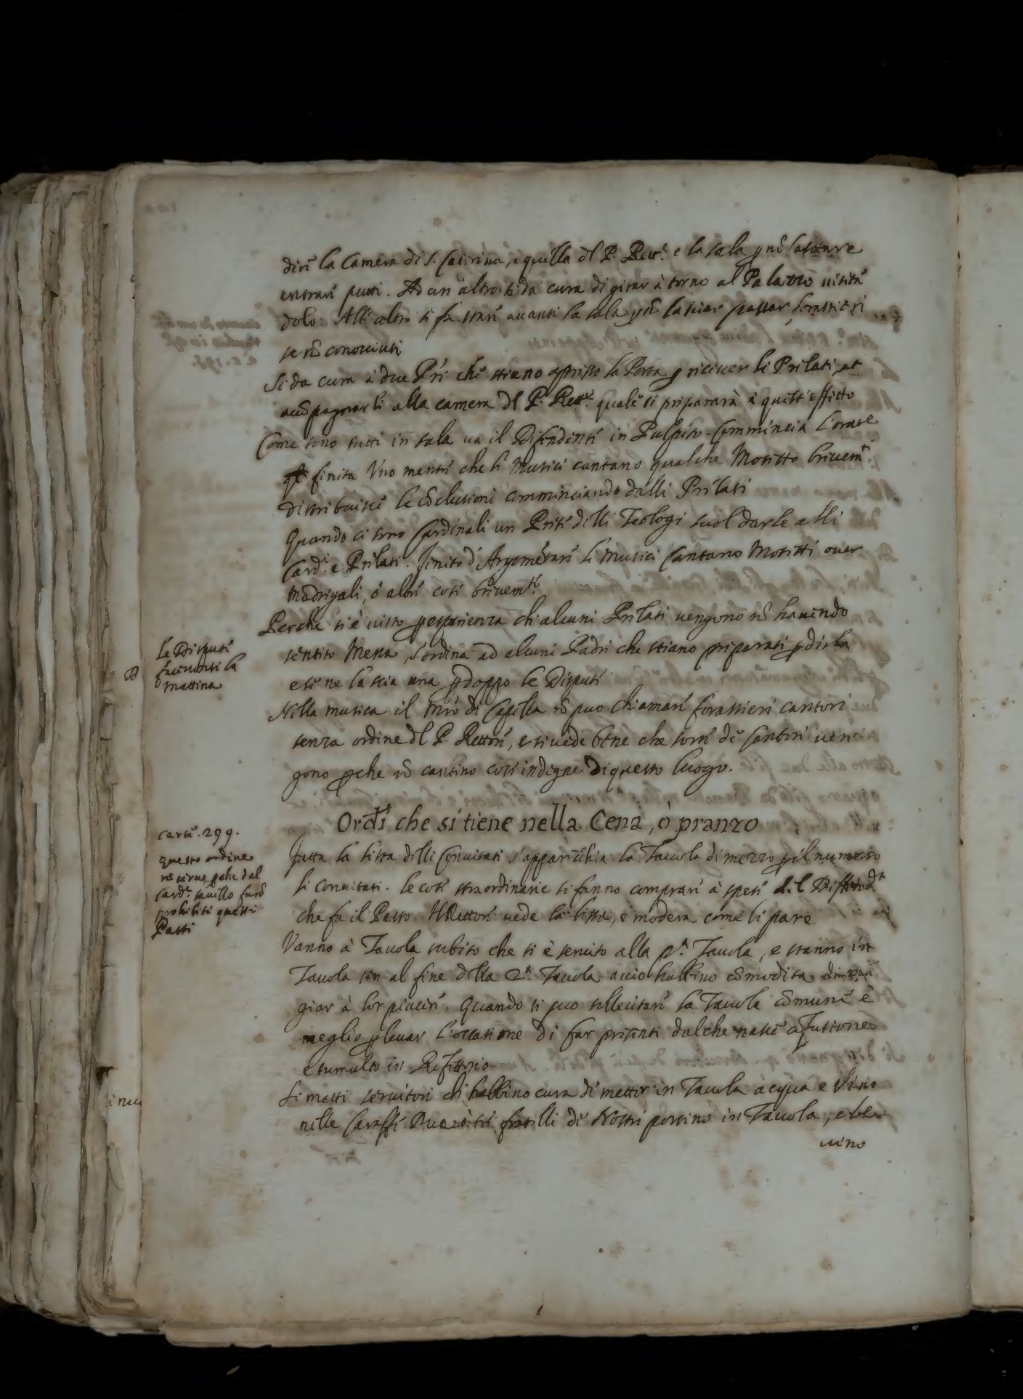 dire la Camera di S. Caterina, e quella del P. Rett.e e la sala p nō lasciare
entrare putti. Ad un altro si da cura di girar à torno al Palazzo visitā
dolo. Alli altri si fa stare avanti la sala p nō lasciar passar forastieri
se nō conosciuti
Si da cura à due P̄ri che stieno appresso la Porta p ricever li Prelati, et
accōpagnarli alla camera del P. Rett.e quale si preparara à questo effetto
Come sono tutti in sala va il Difendente in Pulpito. Commincia l'orat.e
finita Uno mentre che li Musici cantano qualche Motetto brevem.te
distribuisce le cōclusioni comminciando dalli Prelati
Quando ci sono Cardinali un Prete delli Teologi suol darle alli
Card.li e Prelati. Finito d'Argomētare li Musici Cantano Motetti over
Madrigali, ò altre cose brevem.te
Perche si è visto p esperienza che alcuni Prelati vengono nō havendo
sentito Messa, s'ordina ad alcuni Padri che stiano preparati p dirla
e se ne lascia una p doppo le Dispute
Le Dispute
facevonsi la
mattina
Nella musica il Mrō di Capella nō puo chiamare forastieri cantori
senza ordine del P. Rettore, e si vede bene che sorte di Cantori ven
gono p che nō cantino cose indegne di questo luogo.
Ord.e che si tiene nella Cena, ò pranzo
carte. 299.
questo ordine
nō serve pche dal
Card.e
prohibiti questi
Pasti
Fatta la lista delli Convitati s'apparēchia la Tavola di mezzo p il numero
li convitati. le cose straordinarie si fanno comprare à spese del Difend.te
che fa il Pasto. Il Rettore vede la lista, e modera come li pare
Vanno à Tavola subito che si è servito alla p.a Tavola, e stanno in
Tavola sin al fine della 2.a Tavola accio habbino cōmodita di man
giar à lor piacere. Quando si puo sollecitare la Tavola cōmune è
meglio p levar l'occasione di far presenti dal che nasce cōfusione
e tumulto in Refettorio
Si mette servitori che habbino cura di metter in Tavola acqua e Vino
nelle Caraffe. Due ò tre fratelli de Nostri portino in Tavola, e le
vino